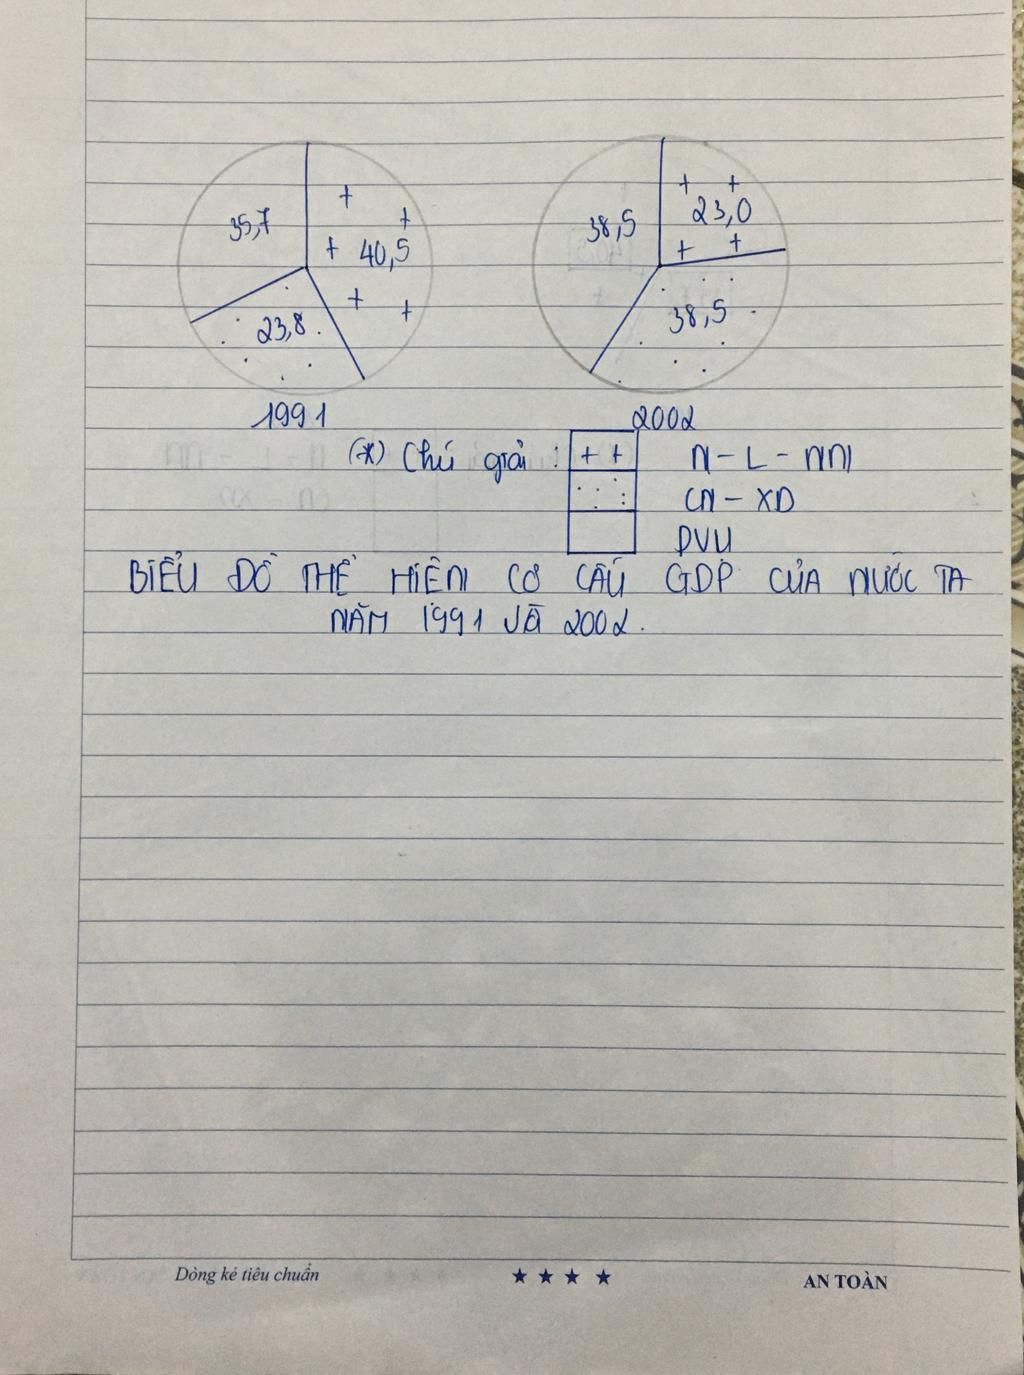 35,7
40,5
23,8
1991
38,5
23,0
38,5
2002
(*) Chú giải : + + N - L - NN
CN - XD
DVU
BIỂU ĐỒ THỂ HIỆN CƠ CẤU GDP CỦA NƯỚC TA
NĂM 1991 VÀ 2002.
Dòng kẻ tiêu chuẩn ★ ★ ★ ★ AN TOÀN